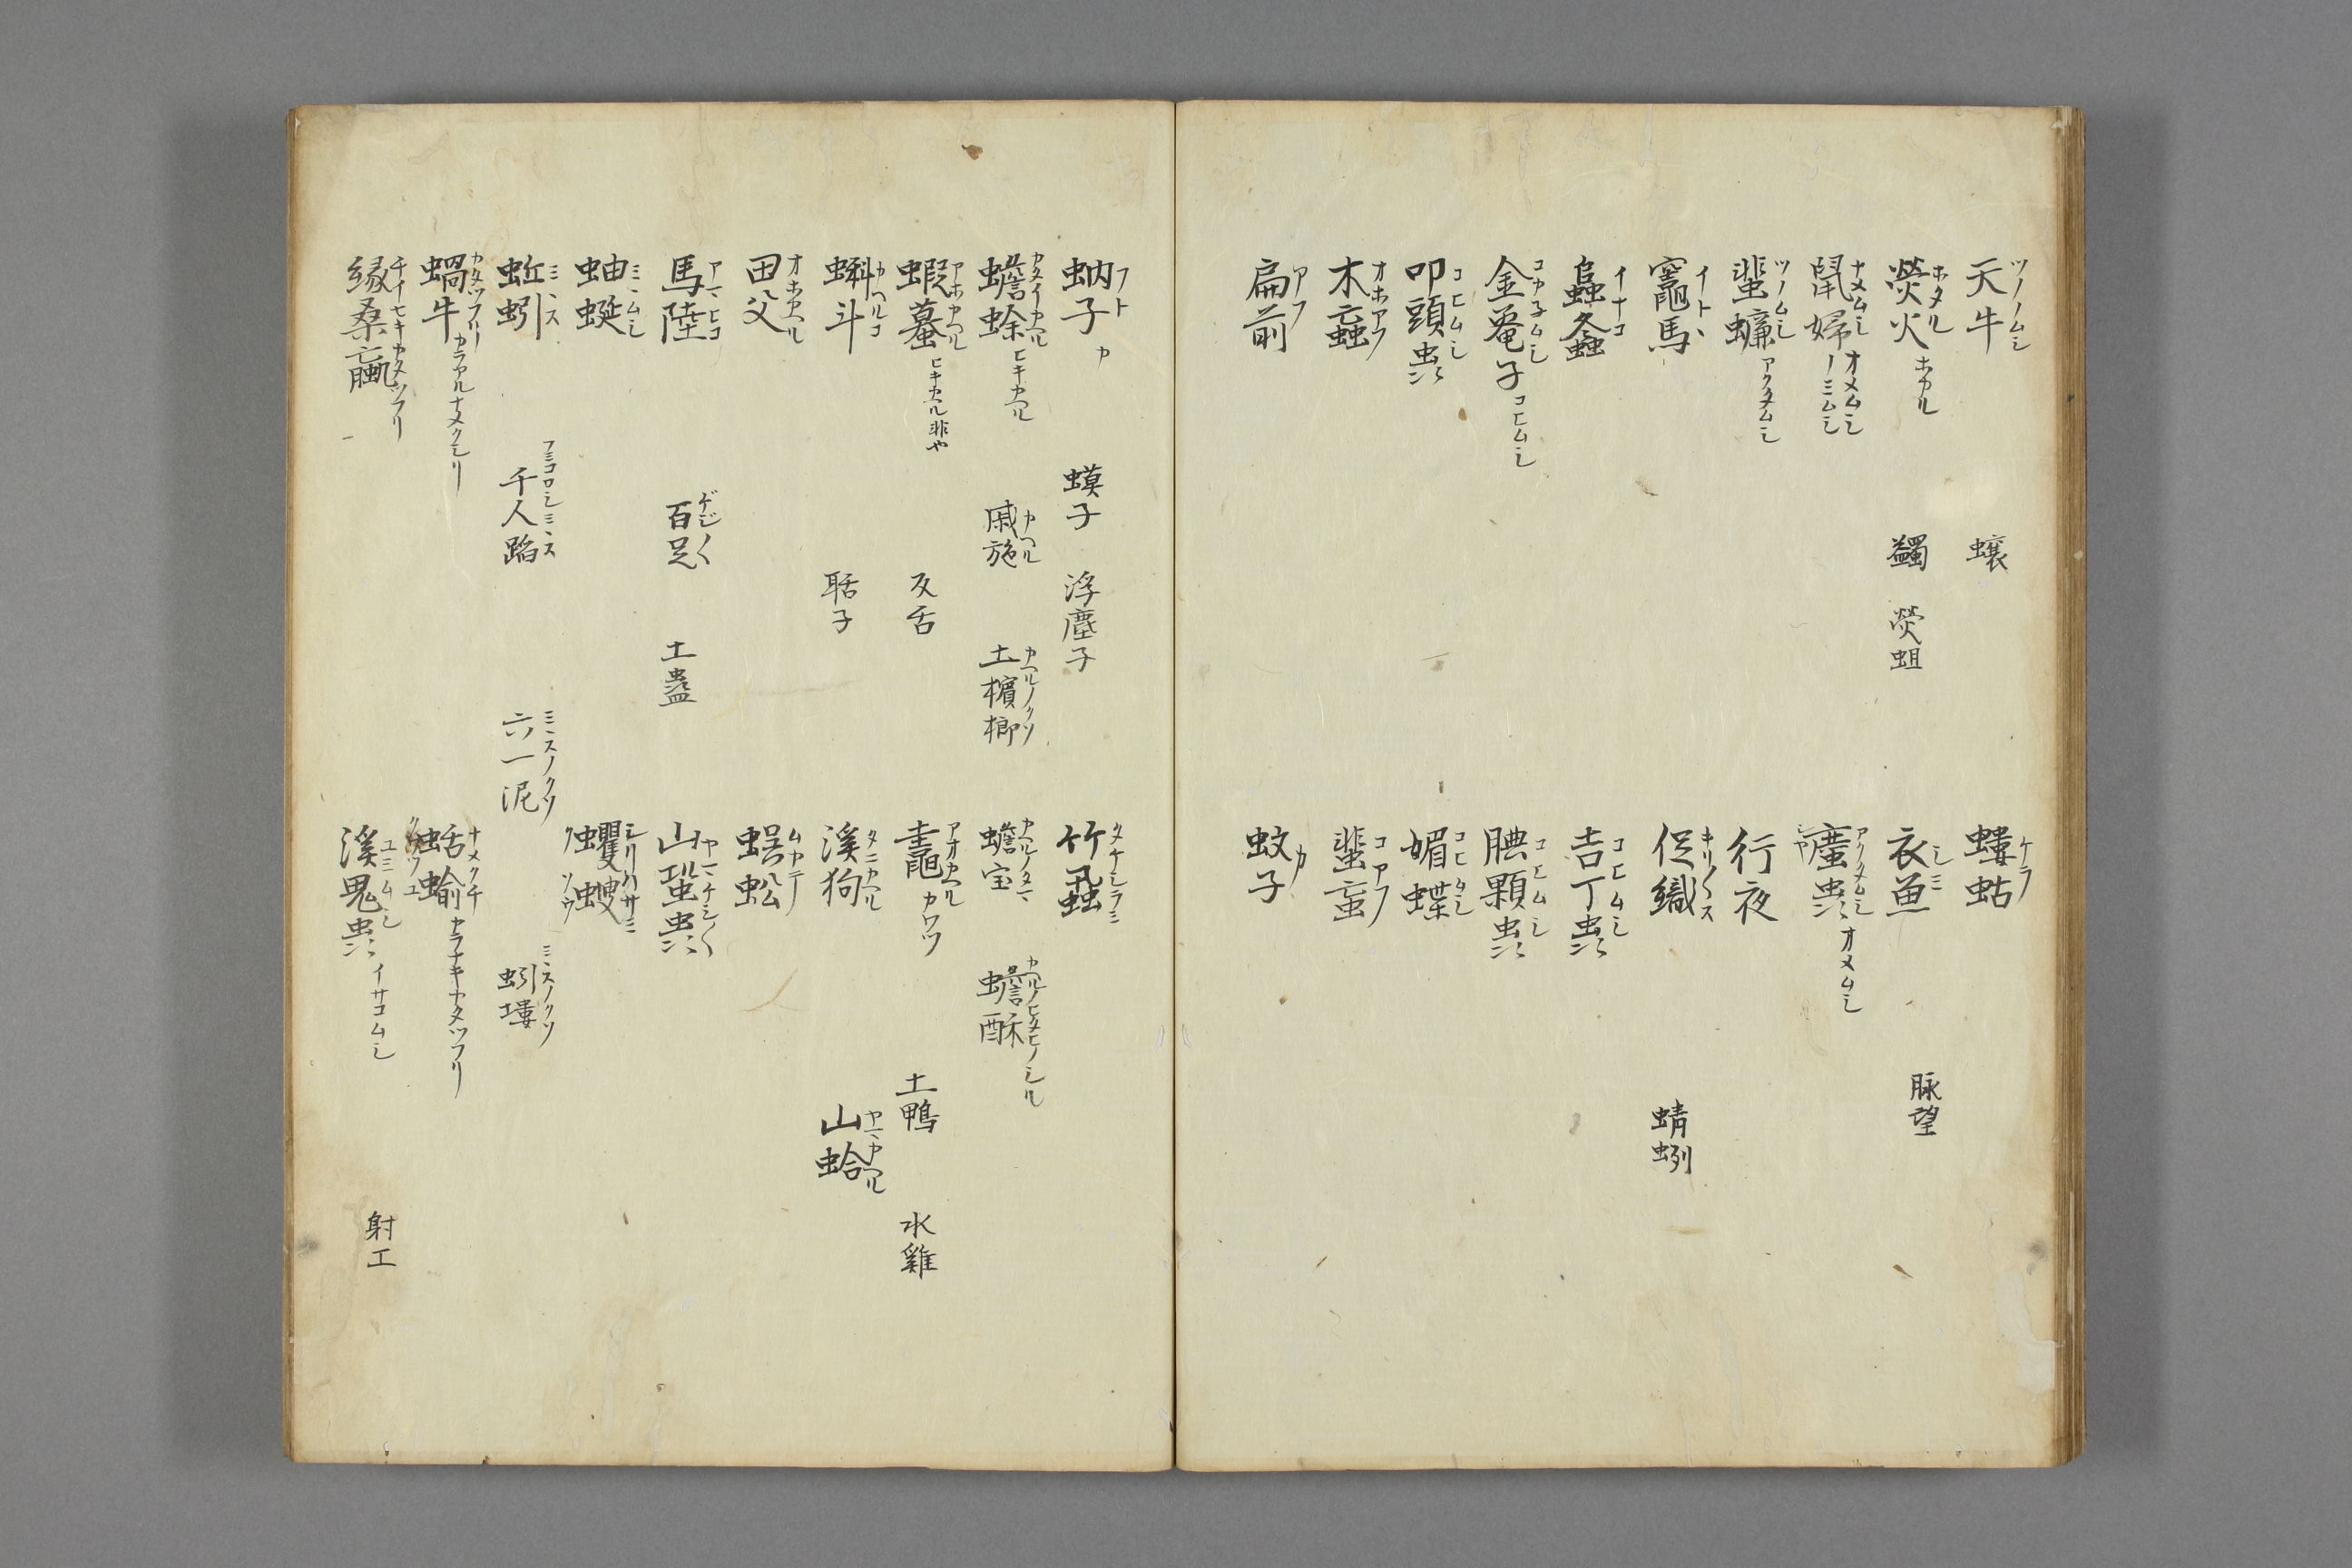 天牛 ツノノムシ 蠰 螻蛄 ケラ
熒火 ホタル ホタル 蠲 熒蛆 衣魚 シミ 脉望
鼠婦 ナメムシ オメムシ ノミムシ 䗪虫 アクタムシ オメムシ シヤ
蜚蠊 ツノムシ アクタムシ 行夜
竈馬 イトヽ 促織 キリ〱ス 蜻蛚
𧑄螽 イナコ 吉丁虫 コヒムシ
金亀子 コカ子ムシ コヒムシ 腆顆虫 コヒムシ
叩頭虫 コヒムシ 媚蝶 コヒムシ
木蝱 オホアフ 蜚蝱 コアフ
扁前 アフ 蚊子 カ
蚋子 フト カ 蟆子 浮塵子 竹蝨 タケシラミ
蟾蜍 ヒキカヘル 戚施 カヘル 土檳榔 カヘルノクソ 蟾宝 カヘルノタマ 蟾酥
蝦蟇 アホカヘル ヒキカヘル非や 反舌 鼃 アオカヘル カワツ 土鴨 水雞
蝌斗 カヘルコ 聒子 溪狗 タニカヘル 山蛤 ヤマカヘル
田父 オホカヘル 蜈蚣 ムカテ
馬陸 アマヒコ 百足 ゲジ〱 土蠱 山蛩虫
蚰蜒 ミヽムシ 蠼螋 シリハサミ クソウ
蚯蚓 ミヽス 千人踏 フミコロシミヽス 六一泥 ミヽスノクソ 蚓塿 ミヽスノクソ
蝸牛 カタツフリ カラアルナメクシリ 蛞蝓 ナメクチ カラナキカタツフリ
縁桑蠃 チイセキカタツフリ 溪鬼虫 ユミムシ イサコムシ 射工